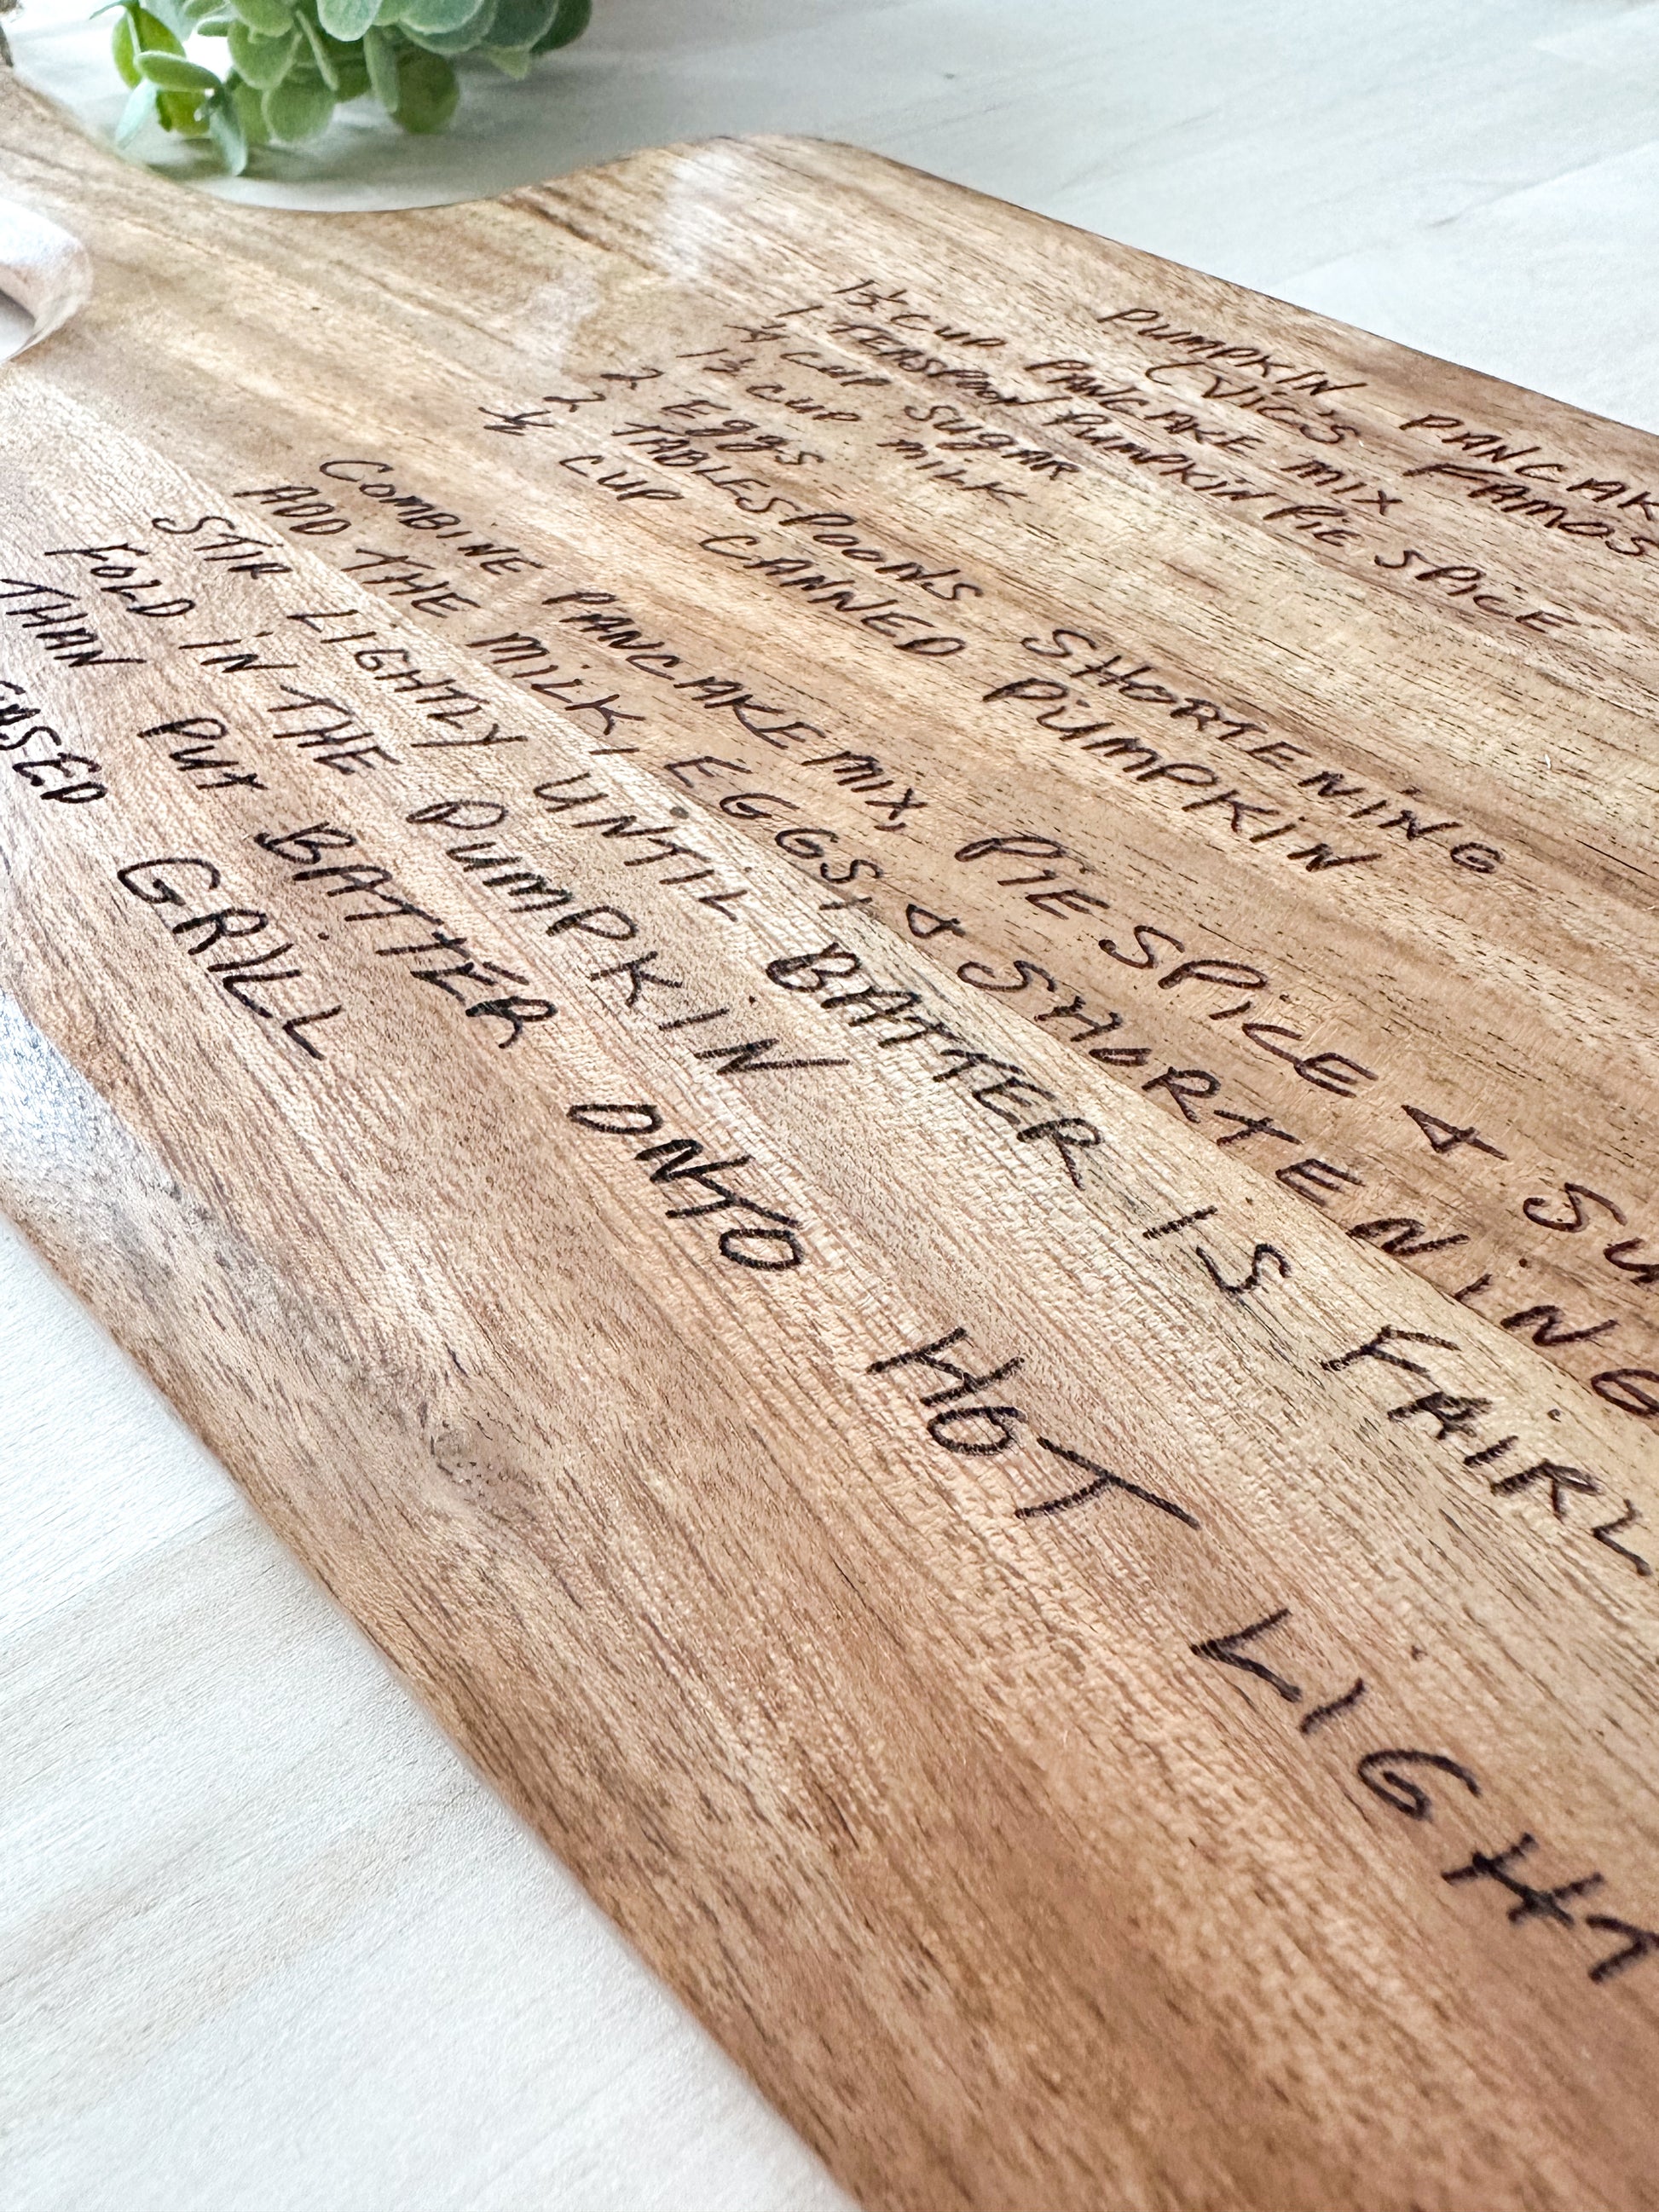 PUMPKIN PANCAK
(VIC'S FAMOS
1½ CUP PANCAKE MIX
1 TEASPOON PUMPKIN PIE SPICE
¼ CUP SUGAR
1½ CUP MILK
2 Eggs
2 TABLESPOONS SHORTENING
½ CUP CANNED PUMPKIN
COMBINE PANCAKE MIX, PIE SPICE & SU
ADD THE MILK, EGGS, & SHORTENING
STIR LIGHTLY UNTIL BATTER IS FAIRL
FOLD IN THE PUMPKIN
THAN PUT BATTER ONTO HOT LIGHT
EASED GRILL